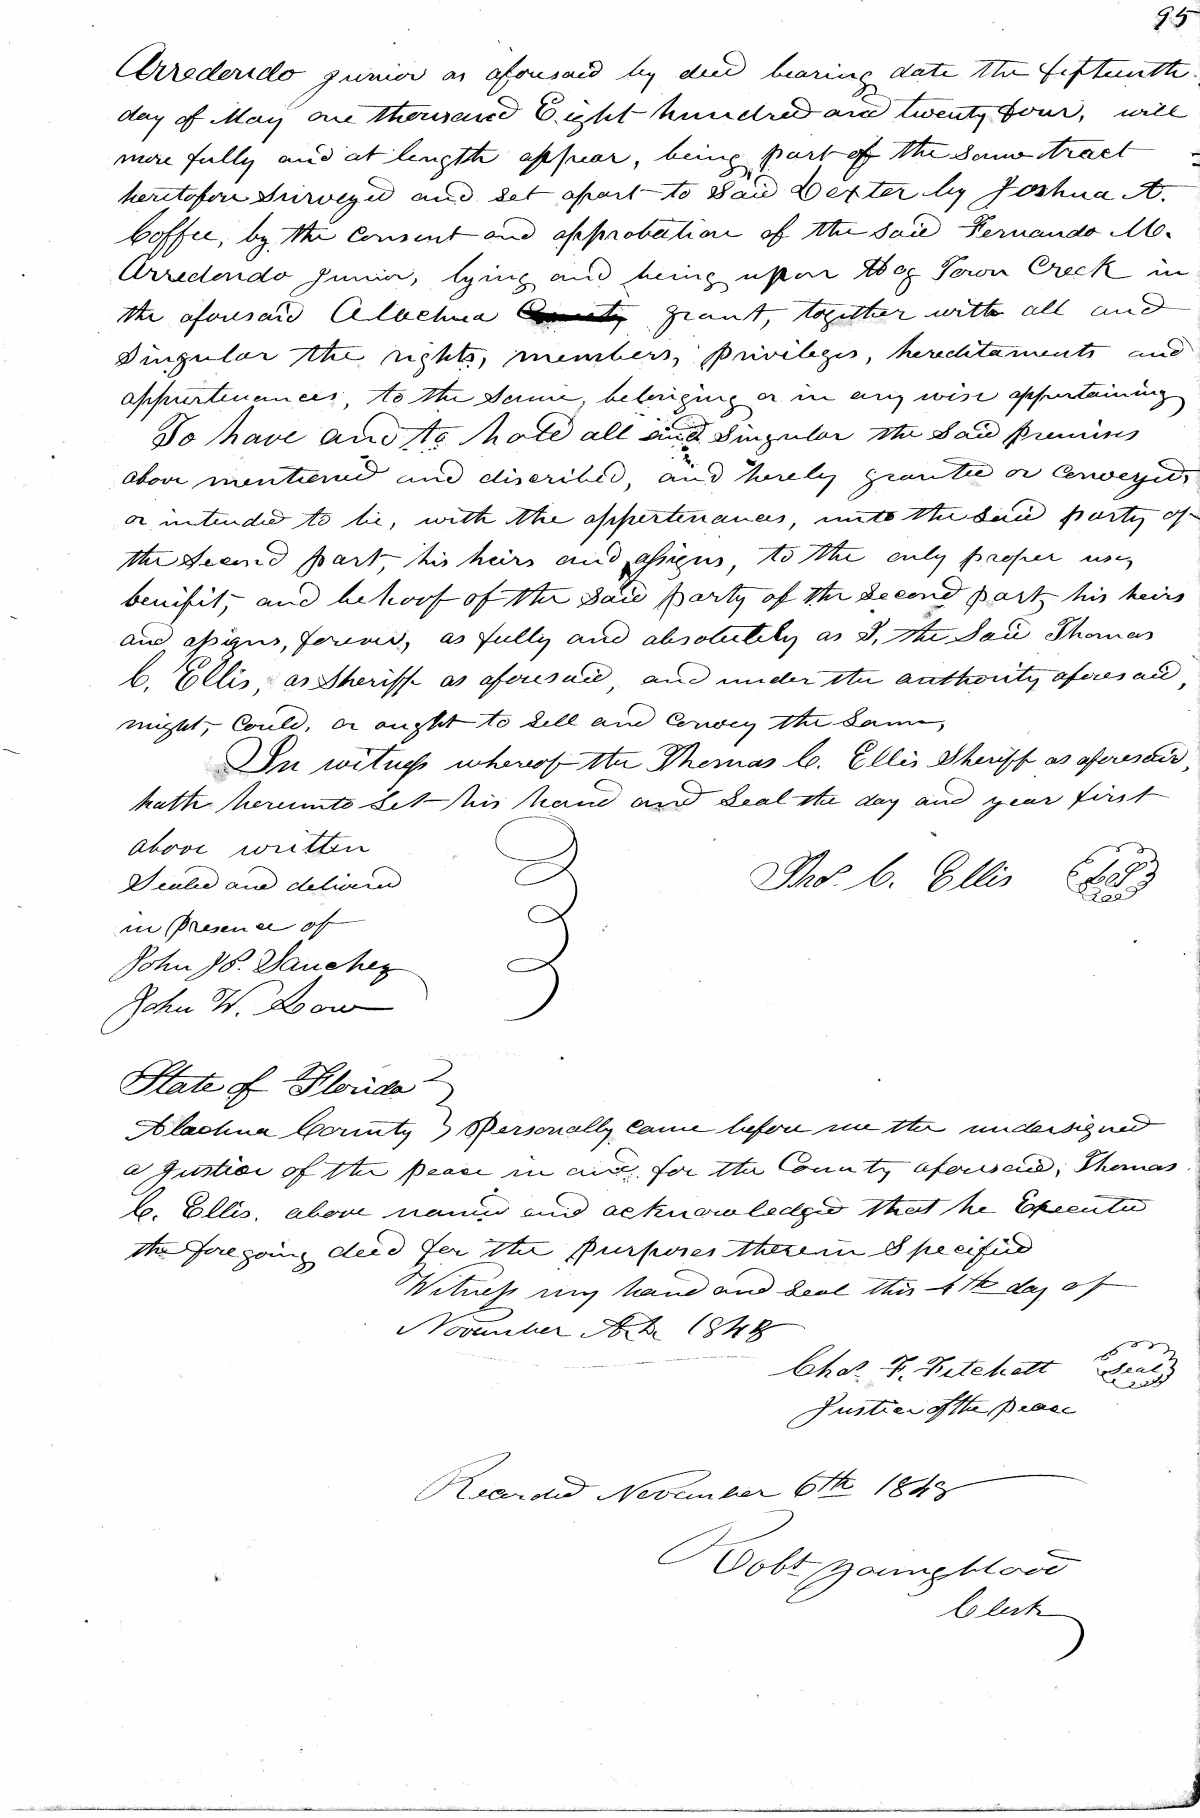 95
Arredendo junior as aforesaid by deed bearing date the fifteenth
day of May one thousand Eight hundred and twenty four, will
more fully and at length appear, being part of the same tract
heretofore surveyed and set apart to said Dexter by Joshua A.
Coffee, by the consent and approbation of the said Fernando M.
Arredondo junior, lying and being upon Hog Town Creek in
the aforesaid Alachua County grant, together with all and
Singular the rights, members, privileges, hereditaments and
appurtenances, to the same, belonging or in any wise appertaining
To have and to hold all and Singular the said premises
above mentioned and discribed, and hereby granted or conveyed,
or intended to be, with the appertenances, unto the said party of
the second part, his heirs and assigns, to the only proper use,
benifit, and behoof of the said party of the second part, his heirs
and assigns, forever, as fully and absolutely as I, the said Thomas
C. Ellis, as Sheriff as aforesaid, and under the authority aforesaid,
might, could, or ought to sell and convey the same,
In witness whereof the Thomas C. Ellis Sheriff as aforesaid,
hath hereunto set his hand and seal the day and year first
above written
Sealed and delivered
Thos. C. Ellis
in presence of
John Sanchez
John W. Low
State of Florida
Alachua County } Personally came before me the undersigned
a Justice of the peace in and for the County aforesaid, Thomas
C. Ellis. above named and acknowledged that he Executed
the foregoing deed for the purposes therein Specified
Witness my hand and seal this 4th day of
November A.D. 1848
Chas. F. Fitchett Seal
Justice of the peace
Recorded November 6th 1848
Robt Youngblood
Clerk